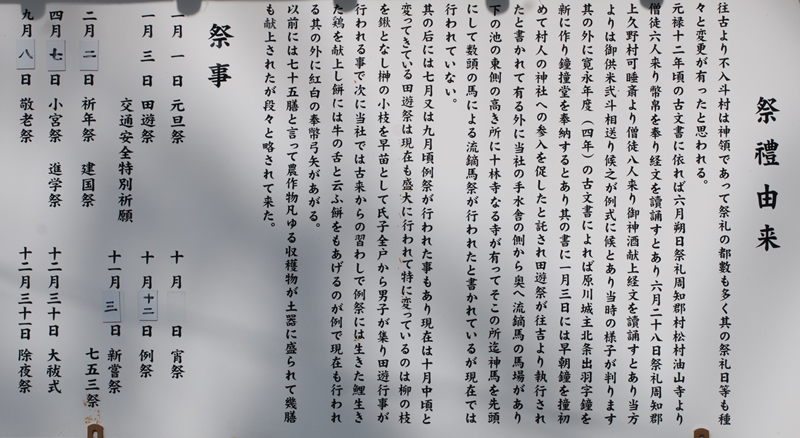 祭禮由来
往古より不入斗村は神領であって祭礼の都數も多く其の祭礼日等も種
々と変更が有ったと思われる。
元禄十二年頃の古文書に依れば六月朔日祭礼周知郡村松村油山寺より
僧徒六人来り幣帛を奉り経文を讀誦すとあり六月二十八日祭礼周知郡
上久野村可睡斎より僧徒八人来り御神酒献上経文を讀誦すとあり当方
よりは御供米弐斗相送り候之が例式に候とあり当時の様子が判ります
其の外に寛永年度（四年）の古文書によれば原川城主北条出羽字鐘を
新に作り鐘撞堂を奉納するとあり其の書に一月三日には早朝鐘を撞初
めて村人の神社への参入を促したと託され田遊祭が往古より執行され
たと書かれて有る外に当社の手水舎の側から奥へ流鏑馬の馬場があり
下の池の東側の高き所に十林寺なる寺が有ってそこの所迄神馬を先頭
にして数頭の馬による流鏑馬祭が行われたと書かれているが現在では
行われていない。
其の后には七月又は九月頃例祭が行われた事もあり現在は十月中頃と
変ってきている田遊祭は現在も盛大に行われて特に変っているのは柳の枝
を鍬となし榊の小枝を早苗として氏子全戸から男子が集り田遊行事が
行われる事で次に当社では古来からの習わしで例祭には生きた鯉生き
た鶏を献上し餅には牛の舌と云ふ餅をもあげるのが例で現在も行われ
る其の外に紅白の奉幣弓矢があがる。
以前には七十五膳と言って農作物凡ゆる収穫物が土器に盛られて幾膳
も献上されたが段々と略されて来た。
祭事
一月一日 元旦祭
一月三日 田遊祭
交通安全特別祈願
二月二日 祈年祭 建国祭
四月七日 小宮祭 進学祭
九月八日 敬老祭
十月 日 宵祭
十月十二日 例祭
十一月三日 新嘗祭
七五三祭
十二月三十日 大祓式
十二月三十一日 除夜祭